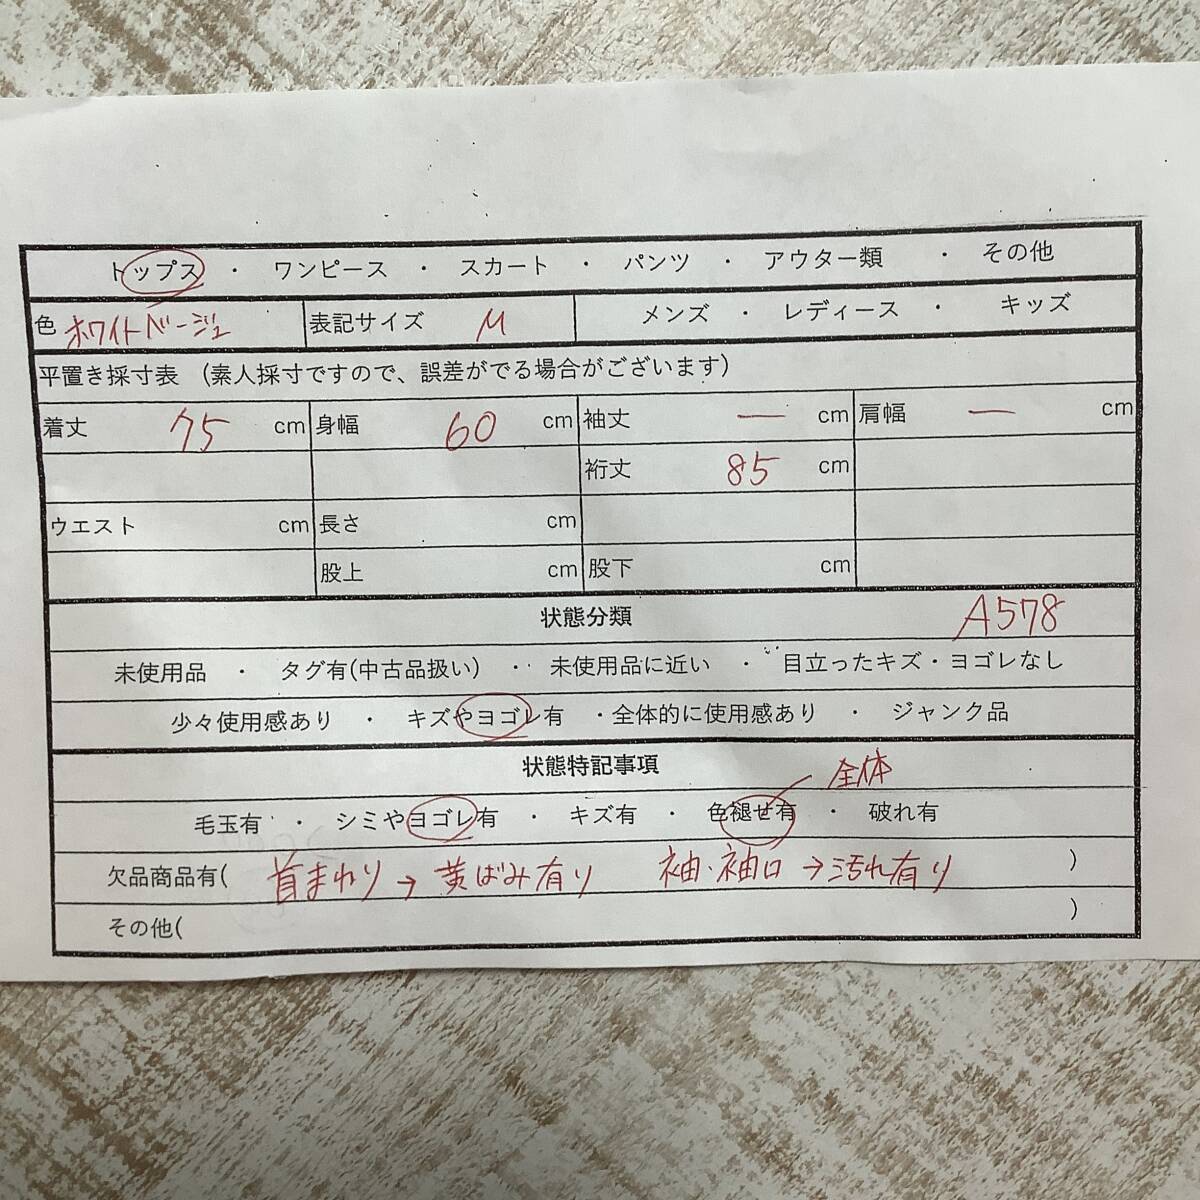 トップス ・ ワンピース ・ スカート ・ パンツ ・ アウター類 ・ その他
色 ホワイトベージュ 表記サイズ M メンズ ・ レディース ・ キッズ
平置き採寸表 (素人採寸ですので、誤差がでる場合がございます)
着丈 75 cm 身幅 60 cm 袖丈 — cm 肩幅 — cm
裄丈 85 cm
ウエスト cm 長さ cm
股上 cm 股下 cm
状態分類 A578
未使用品 ・ タグ有(中古品扱い) ・ 未使用品に近い ・ 目立ったキズ・ヨゴレなし
少々使用感あり ・ キズやヨゴレ有 ・全体的に使用感あり ・ ジャンク品
状態特記事項 全体
毛玉有 ・ シミやヨゴレ有 ・ キズ有 ・ 色褪せ有 ・ 破れ有
欠品商品有( 首まわり→黄ばみ有り 袖・袖口→汚れ有り )
その他( )